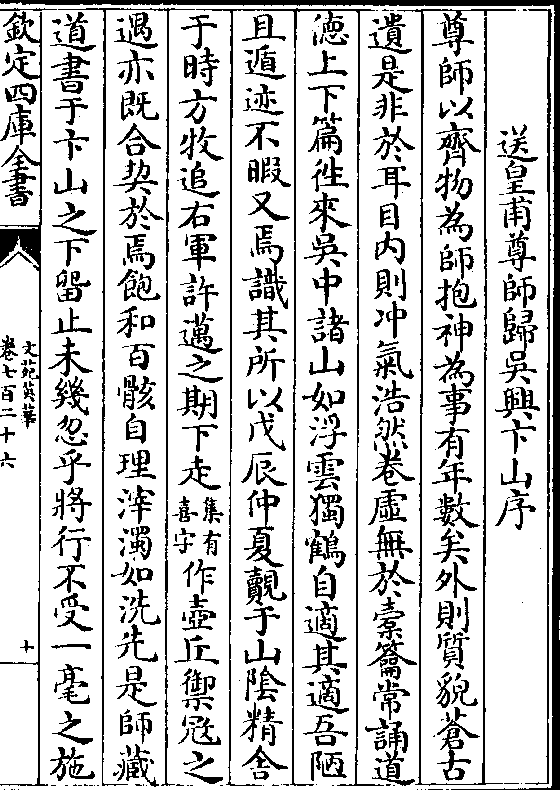 送皇甫尊師歸吳興卞山序
尊師以齊物為師抱神為事有年數矣外則質貌蒼古
遺是非於耳目内則冲氣浩然卷虛無於橐籥常誦道
徳上下篇徃來吳中諸山如浮雲獨鶴自適其適吾陋
且遁迹不暇又焉識其所以戊辰仲夏覿于山陰精舎
于時方牧追右軍許邁之期下走集有喜字作壺丘禦冦之
遇亦既合契於焉飽和百骸自理滓濁如洗先是師藏
道書于卞山之下留止未幾忽乎將行不受一毫之施
欽定四庫全書
文苑英華
卷七百二十六
十